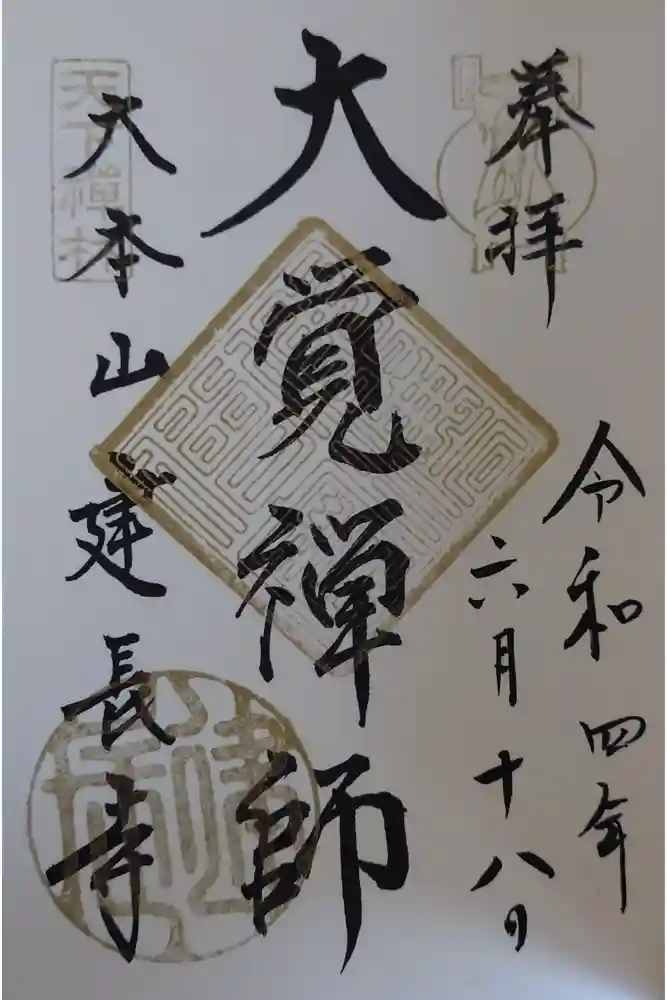 奉拝
令和四年
六月十八日
大覚禅師
大本山建長寺
天下禅林